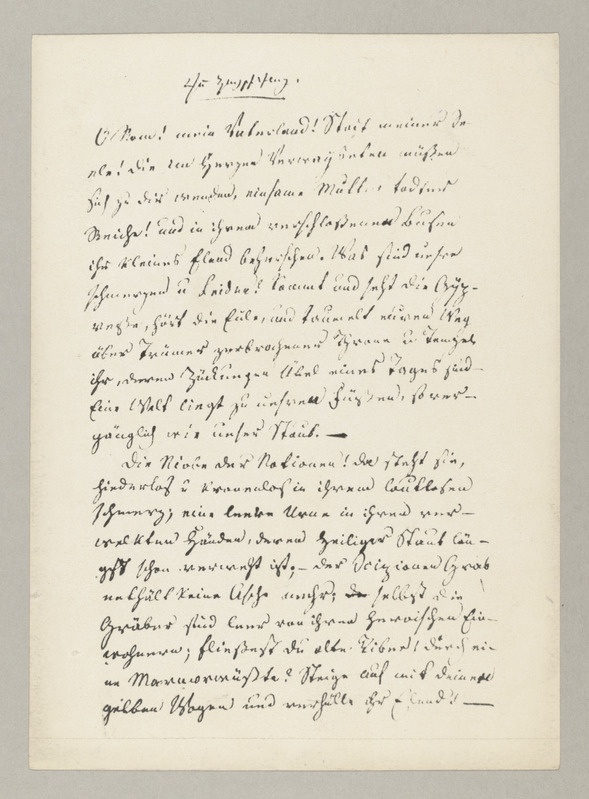 O Rom! mein Vaterland! Stadt meiner Se-
ele! die am Herzen Verwayseten müßen
sich zu dir wenden, einsame Mutter todter
Reiche! und in ihrem verschloßenen Busen
ihr kleines Elend beherschen. Was sind unsre
schmerzen u Leiden! kommt und seht die Cyp-
reße, hört die Eule, und taumelt euren Weg
über Trümer zerbrochener Throne u Tempel
ihr, deren Zuckungen Übel eines Tages sind—
Eine Welt liegt zu unsren Füßen, so ver-
gänglich wie unser Staub. —
Die Niobe der Nationen! da steht sie,
kinderlos u kronenlos in ihrem lautlosen
schmerz; eine leere Urne in ihren ver-
welkten Händen, deren heiliger Staub län-
gst schon verweht ist;– der Scipionen Grab
enthält keine Asche mehr; selbst die
Gräber sind leer von ihren heroischen Ein-
wohnern; fließest du alte Tiber! durch ei-
ne Marmorwüste? Steige auf mit deinen
gelben Wogen und verhülle ihr Elend! —